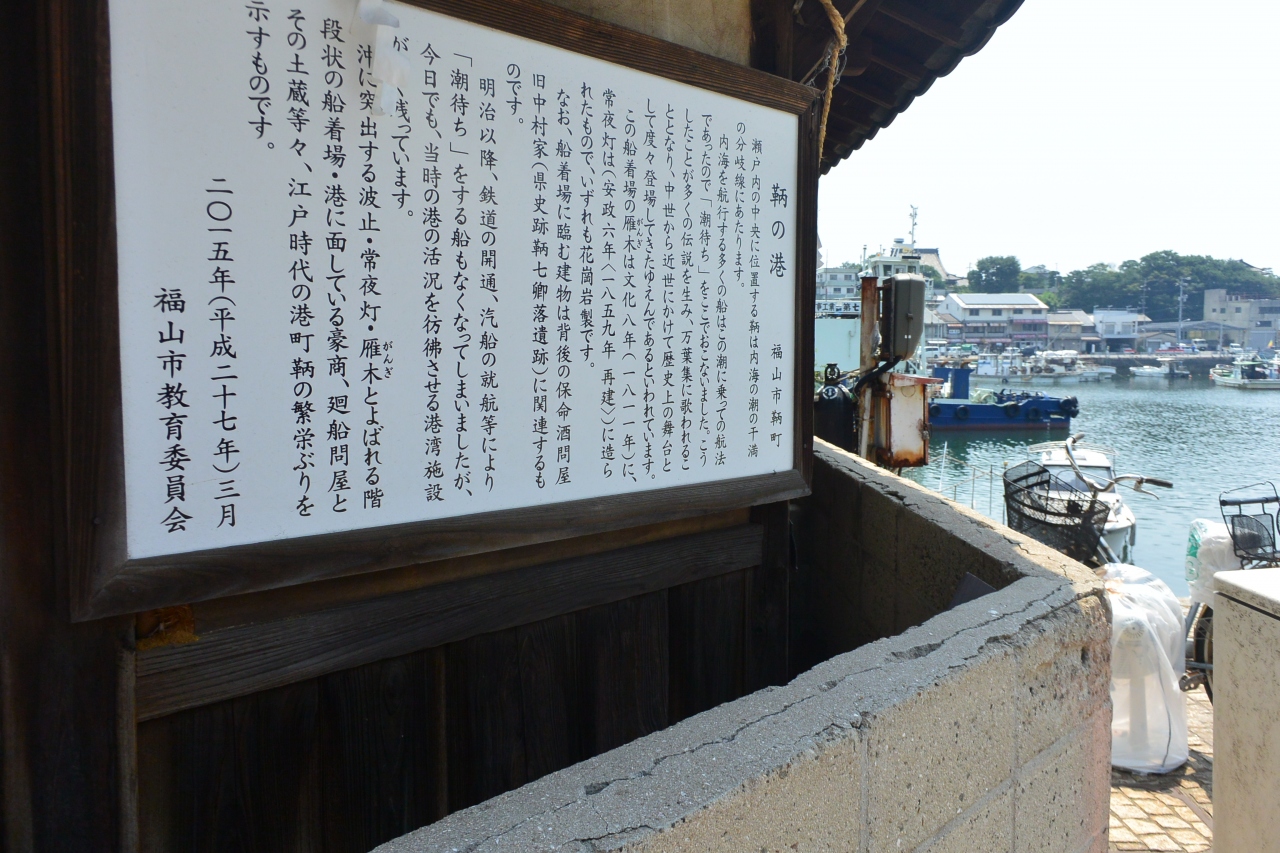 鞆の港
福山市鞆町
瀬戸内の中央に位置する鞆は内海の潮の干満
の分岐線にあたります。
内海を航行する多くの船はこの潮に乗っての航法
であったので「潮待ち」をここでおこないました。こう
したことが多くの伝説を生み、万葉集に歌われるこ
ととなり、中世から近世にかけて歴史上の舞台と
して度々登場してきたゆえんであるといわれています。
この船着場の雁木は文化八年(一八一一年)に、
がんぎ
常夜灯は(安政六年〈一八五九年 再建〉)に造ら
れたもので、いずれも花崗岩製です。
なお、船着場に臨む建物は背後の保命酒問屋
旧中村家(県史跡鞆七卿落遺跡)に関連するも
のです。
明治以降、鉄道の開通、汽船の就航等により
「潮待ち」をする船もなくなってしまいましたが、
今日でも、当時の港の活況を彷彿させる港湾施設
が、残っています。
沖に突出する波止・常夜灯・雁木とよばれる階
がんぎ
段状の船着場・港に面している豪商、廻船問屋と
その土蔵等々、江戸時代の港町鞆の繁栄ぶりを
示すものです。
二〇一五年(平成二十七年)三月
福山市教育委員会